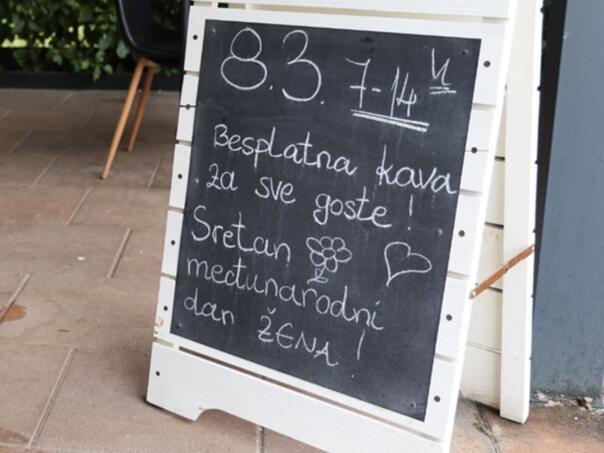 8.3. 7-14 h
Besplatna kava
za sve goste!
Sretan
međunarodni
dan ŽENA!